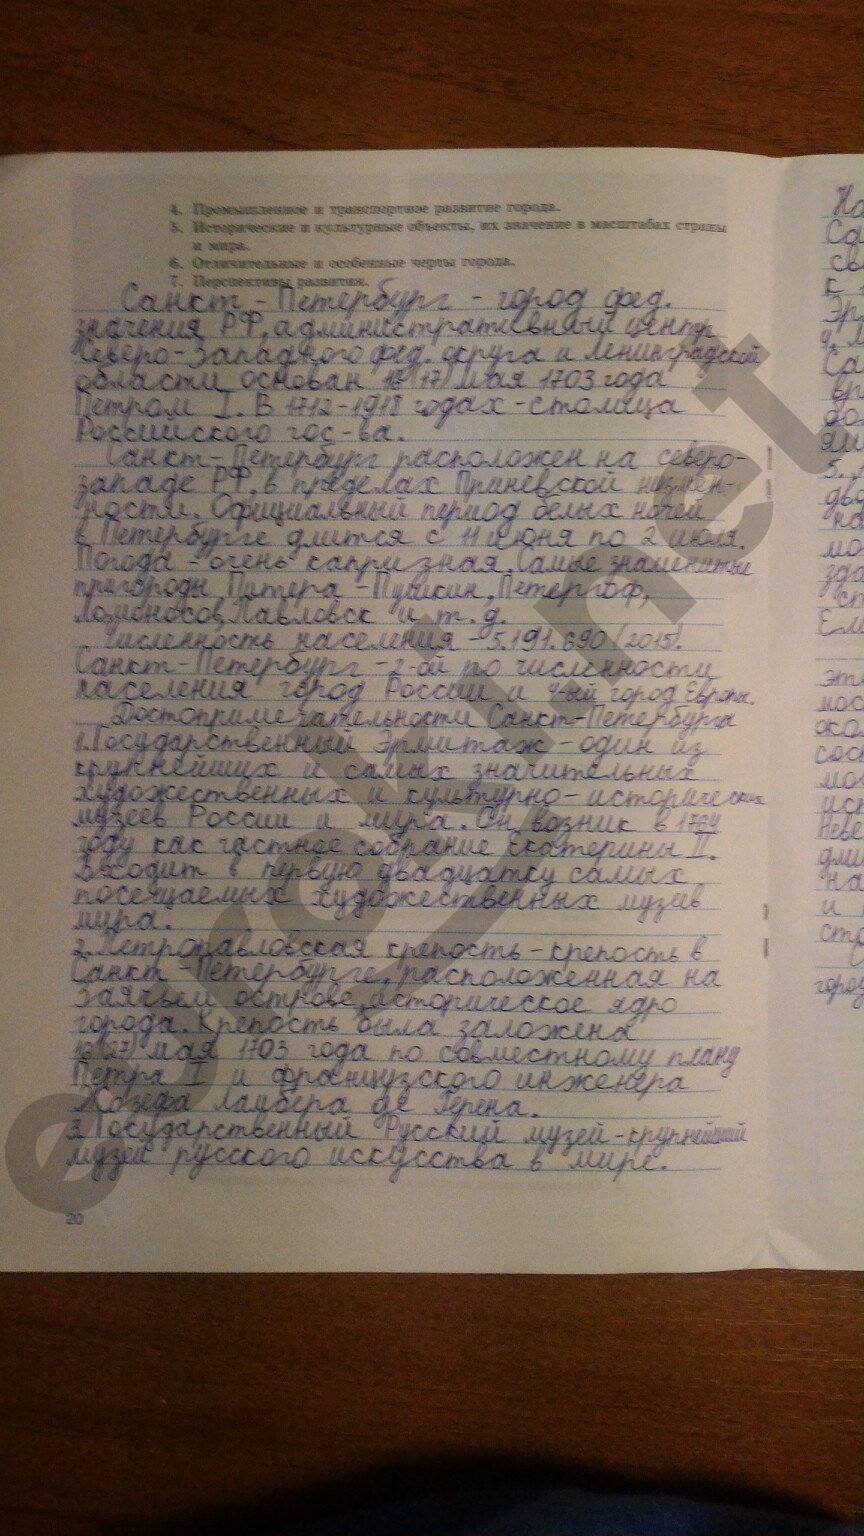 4. Промышленное и транспортное развитие города.
5. Исторические и культурные объекты, их значение в масштабах страны
и мира.
6. Отличительные и особенные черты города.
7. Перспективы развития.
Санкт-Петербург - город фед.
значения РФ, административный центр
Северо-Западного фед. округа и Ленинградской
области, основан 16(17) мая 1703 года
Петром I. В 1712-1918 годах - столица
Российского гос-ва.
Санкт-Петербург расположен на северо-
западе РФ, в пределах Приневской низмен-
ности. Официальный период белых ночей
в Петербурге длится с 11 июня по 2 июля.
Погода - очень капризная. Самые знаменитые
пригороды Питера - Пушкин, Петергоф,
Ломоносов, Павловск и т. д.
Численность населения - 5.191.690 (2015).
Санкт-Петербург - 2-ой по численности
населения город России и 4-ый город Европы.
Достопримечательности Санкт-Петербурга
1. Государственный Эрмитаж - один из
крупнейших и самых значительных
художественных и культурно-исторических
музеев России и мира. Он возник в 1764
году как частное собрание Екатерины II.
Входит в первую двадцатку самых
посещаемых художественных музеев
мира.
2. Петропавловская крепость - крепость в
Санкт-Петербурге, расположенная на
Заячьем острове, историческое ядро
города. Крепость была заложена
16(27) мая 1703 года по совместному плану
Петра I и французского инженера
Жозефа Ламбера де Герена.
3. Государственный Русский музей - крупнейший
музей русского искусства в мире.
20
euroki.net